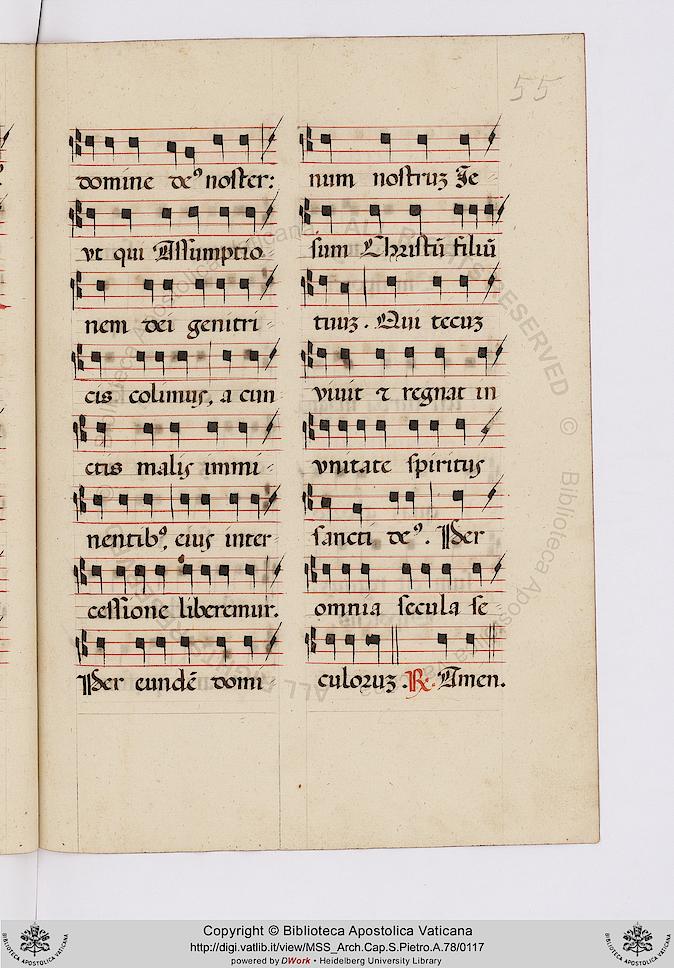 55
domine deꝰ noster:
vt qui Assumptio
nem dei genitri
cis colimus, a cun
ctis malis immi
nentibꝰ, eius inter
cessione liberemur.
Per eundē domi
num nostruꝫ Je
sum Christū filiū
tuuꝫ. Qui tecuꝫ
viuit ⁊ regnat in
vnitate spiritus
sancti deꝰ. Per
omnia secula se
culoruꝫ. ℟. Amen.
ALL RIGHTS RESERVED © Biblioteca Apostolica Vaticana
BIBLIOTECA APOSTOLICA VATICANA
Copyright © Biblioteca Apostolica Vaticana
http://digi.vatlib.it/view/MSS_Arch.Cap.S.Pietro.A.78/0117
powered by DWork • Heidelberg University Library
BIBLIOTECA APOSTOLICA VATICANA